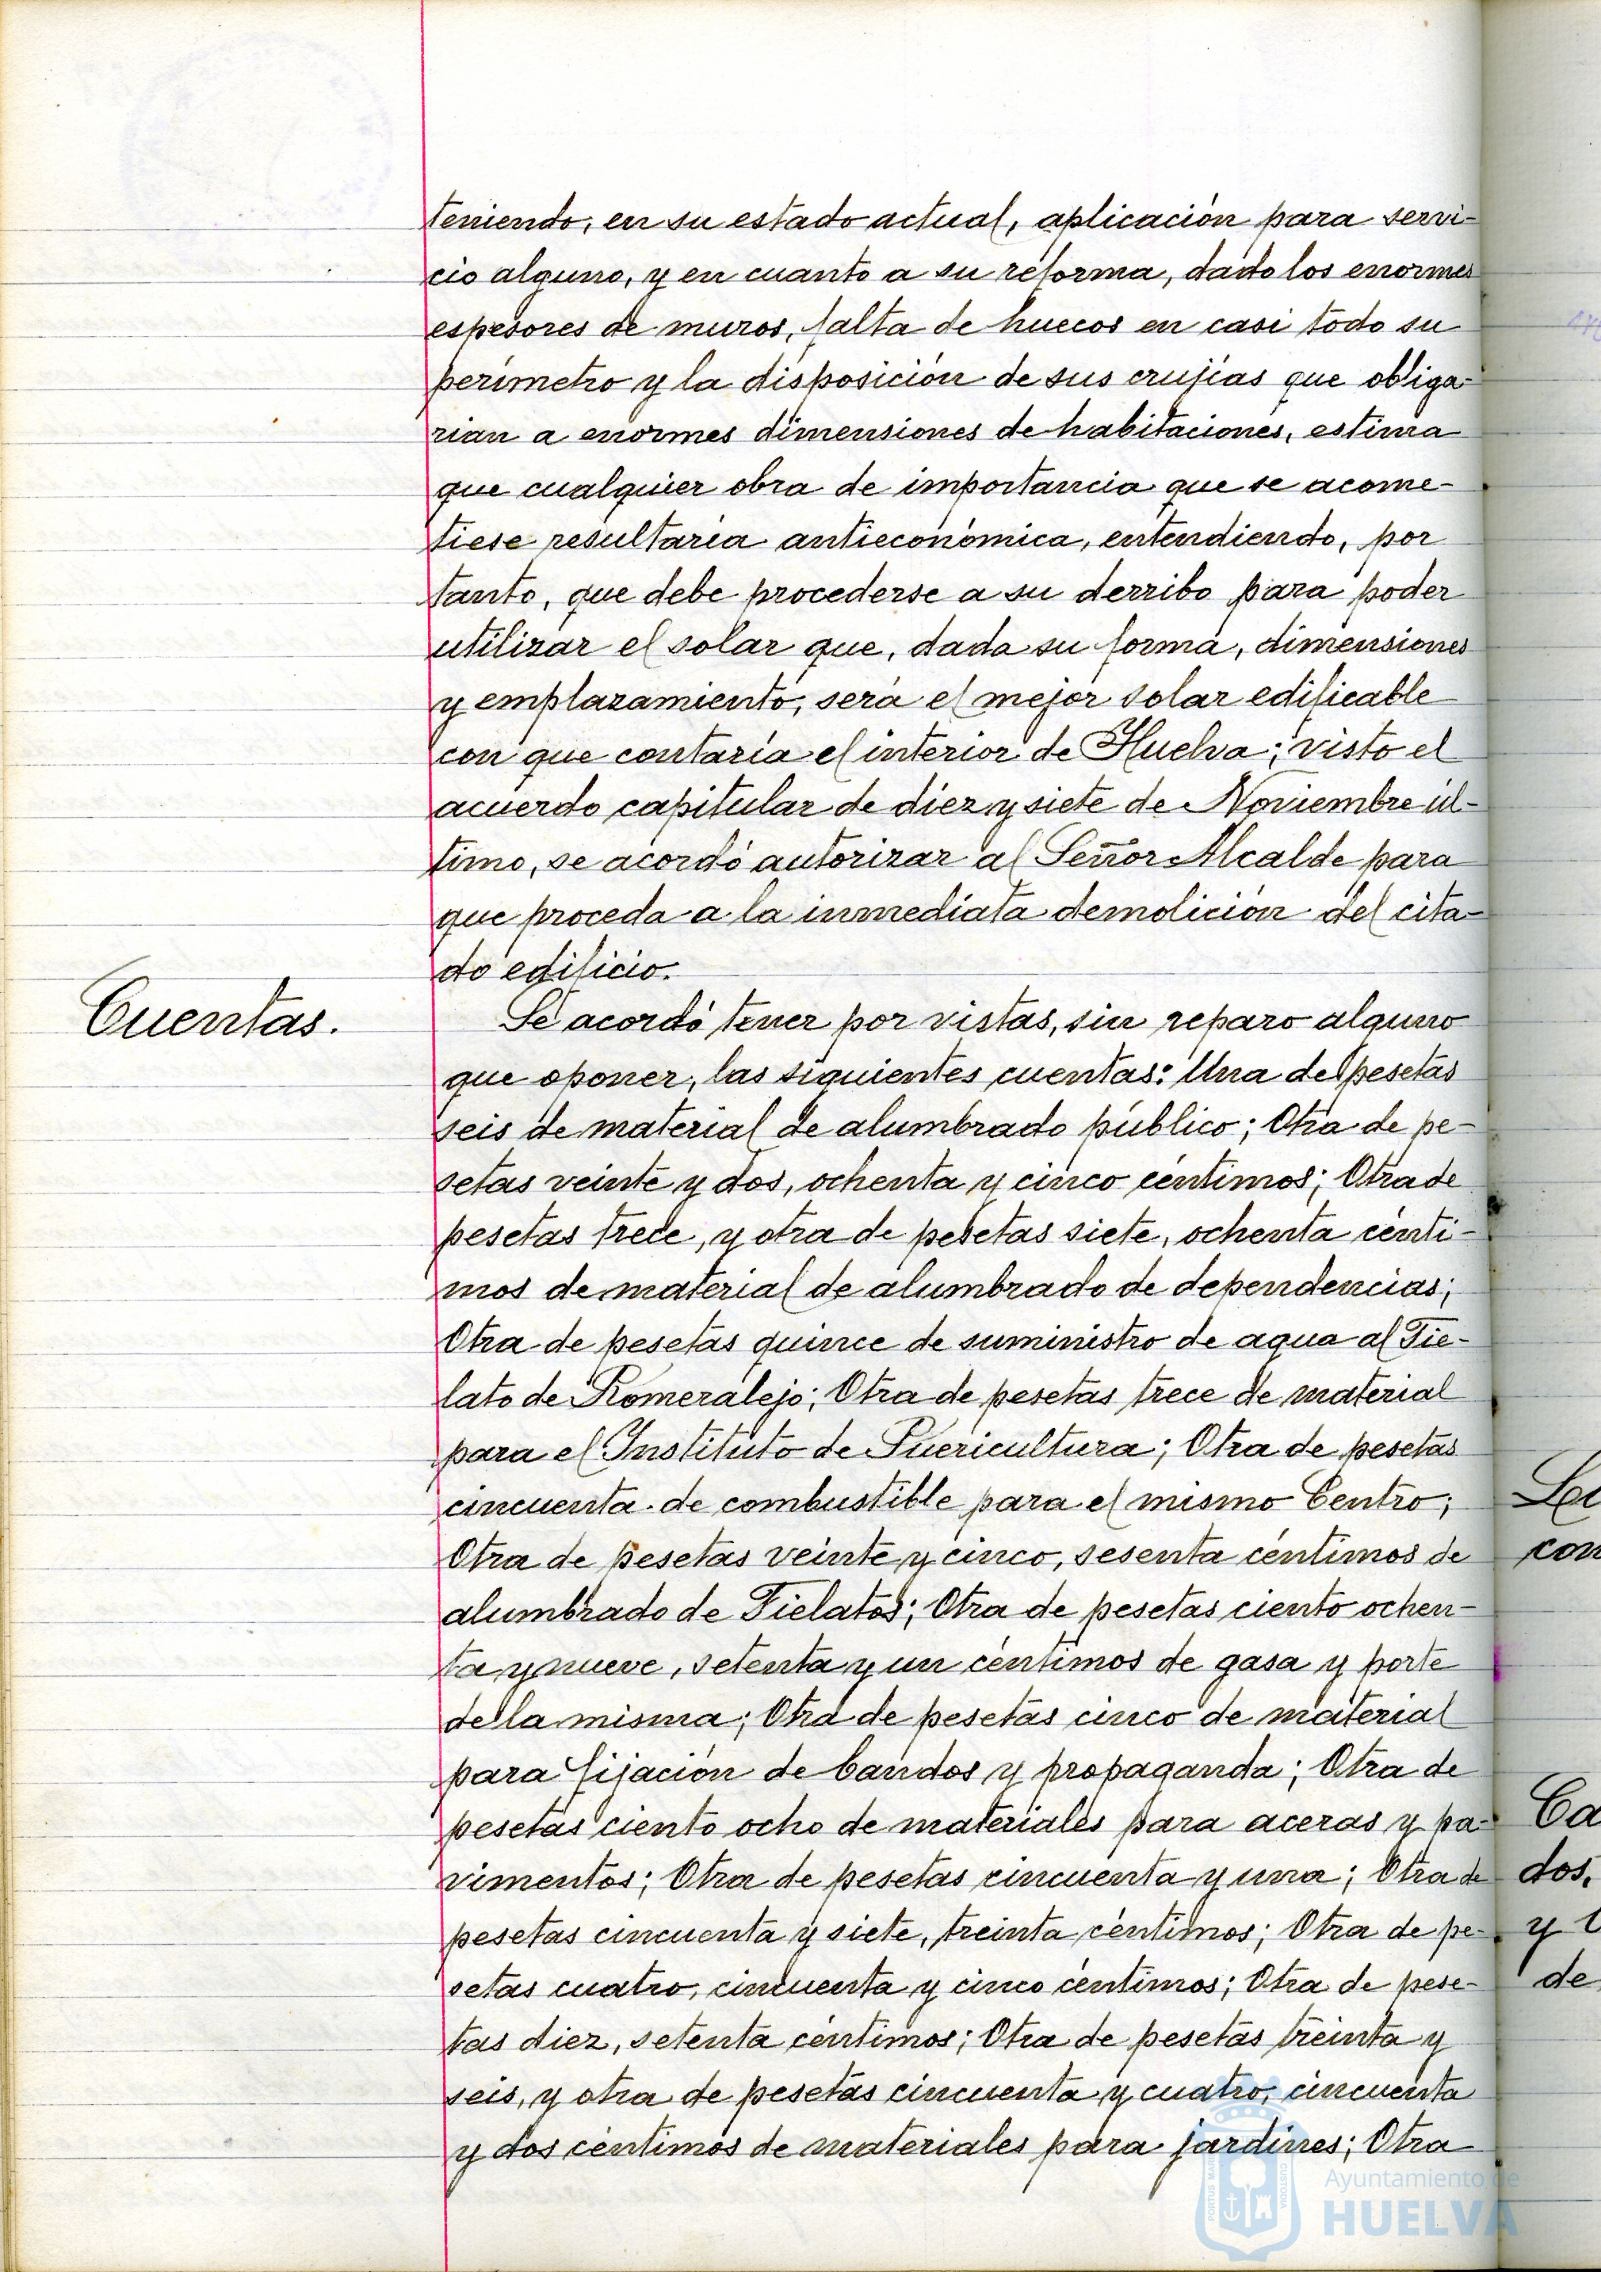 teniendo, en su estado actual, aplicación para servi-
cio alguno, y en cuanto a su reforma, dado los enormes
espesores de muros, falta de huecos en casi todo su
perímetro y la disposición de sus crujías que obliga-
rian a enormes dimensiones de habitaciones, estima
que cualquier obra de importancia que se acome-
tiese resultaria antieconómica, entendiendo, por
tanto, que debe procederse a su derribo para poder
utilizar el solar que, dada su forma, dimensiones
y emplazamiento, será el mejor solar edificable
con que contaría el interior de Huelva; visto el
acuerdo capitular de diez y siete de Noviembre úl-
timo, se acordó autorizar al Señor Alcalde para
que proceda a la inmediata demolición del cita-
do edificio.
Cuentas.
Se acordó tener por vistas, sin reparo alguno
que oponer, las siguientes cuentas: Una de pesetas
seis de material de alumbrado público; Otra de pe-
setas veinte y dos, ochenta y cinco céntimos; Otra de
pesetas trece, y otra de pesetas siete, ochenta cénti-
mos de material de alumbrado de dependencias;
Otra de pesetas quince de suministro de agua al Fie-
lato de Romeralejo; Otra de pesetas trece de material
para el Instituto de Puericultura; Otra de pesetas
cincuenta de combustible para el mismo Centro;
Otra de pesetas veinte y cinco, sesenta céntimos de
alumbrado de Fielatos; Otra de pesetas ciento ochen-
ta y nueve, setenta y un céntimos de gasa y porte
de la misma; Otra de pesetas cinco de material
para fijación de bandos y propaganda; Otra de
pesetas ciento ocho de materiales para aceras y pa-
vimentos; Otra de pesetas cincuenta y una; Otra de
pesetas cincuenta y siete, treinta céntimos; Otra de pe-
setas cuatro, cincuenta y cinco céntimos; Otra de pese-
tas diez, setenta céntimos; Otra de pesetas treinta y
seis, y otra de pesetas cincuenta y cuatro, cincuenta
y dos céntimos de materiales para jardines; Otra
Ayuntamiento de
HUELVA
con
Ca
dos.
y
de